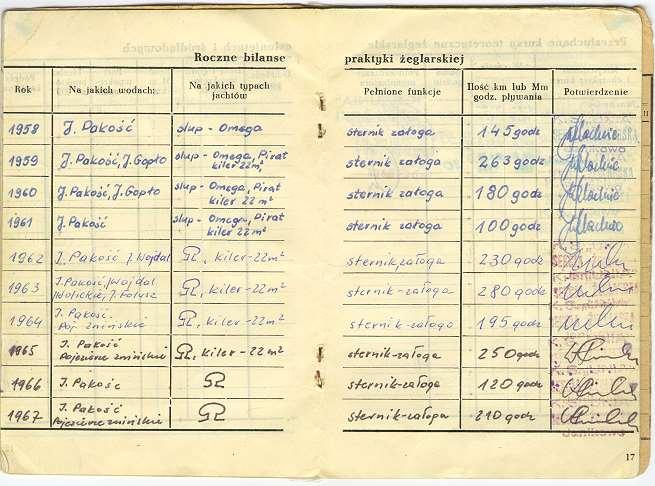 Roczne bilanse praktyki żeglarskiej
Rok Na jakich wodach: Na jakich typach jachtów Pełnione funkcje Ilość km lub Mm godz. pływania Potwierdzenie
1958 J. Pakość slup - Omega sternik załoga 145 godz
1959 J. Pakość, J. Gopło slup - Omega, Pirat kiler 22m² sternik załoga 263 godz
1960 J. Pakość, J. Gopło slup - Omega, Pirat kiler 22m² sternik załoga 180 godz
1961 J. Pakość slup - Omega, Pirat kiler 22m² sternik załoga 100 godz
1962 J. Pakość J Wojdal Ω, kiler - 22m² sternik, załoga 230 godz
1963 J. Pakość, Wojdal Ω, kiler - 22m² sternik - załoga 280 godz
1964 J. Pakość Poj. żnińskie Ω, kiler - 22m² sternik - załoga 195 godz
1965 J. Pakość Pojezierze żnińskie Ω, kiler - 22m² sternik - załoga 250 godz
1966 J. Pakość Ω sternik - załoga 120 godz
1967 J. Pakość Pojezierze żnińskie Ω sternik - załoga 210 godz
17